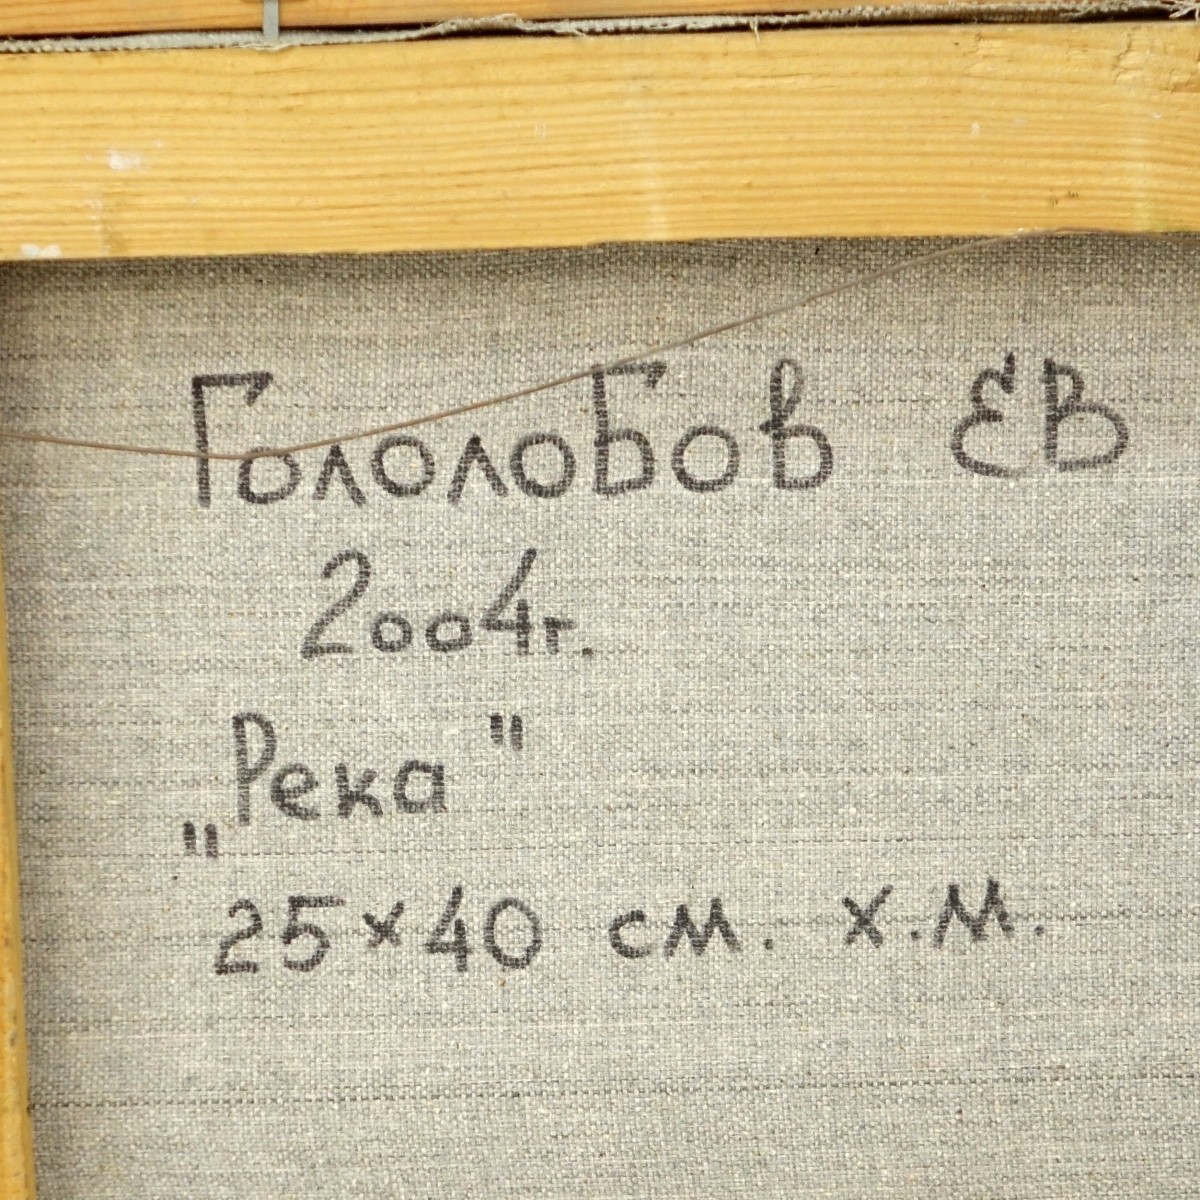 Гололобов ЕВ
2004г.
„Река"
25×40 см. х.м.